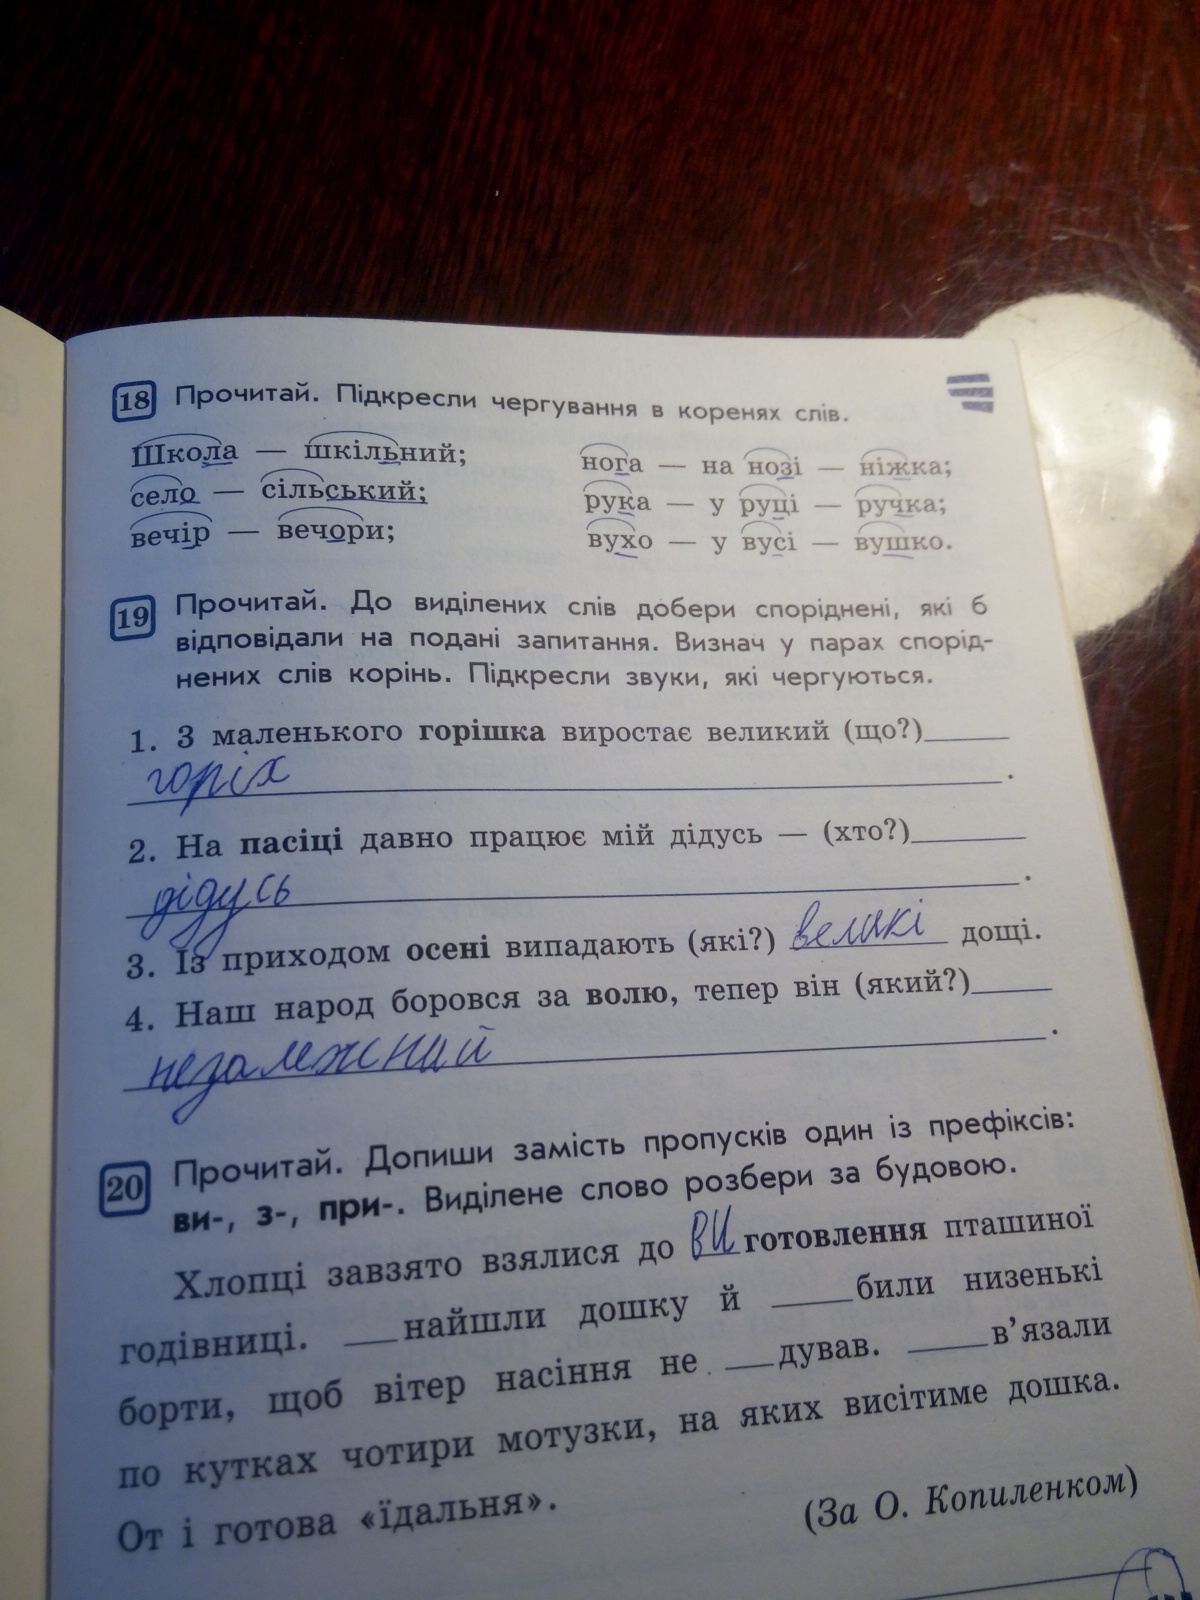 18 Прочитай. Підкресли чергування в коренях слів.
Школа — шкільний;
село — сільський;
вечір — вечори;
нога — на нозі — ніжка;
рука — у руці — ручка;
вухо — у вусі — вушко.
19 Прочитай. До виділених слів добери споріднені, які б
відповідали на подані запитання. Визнач у парах спорід-
нених слів корінь. Підкресли звуки, які чергуються.
1. З маленького горішка виростає великий (що?)
горіх .
2. На пасіці давно працює мій дідусь — (хто?)
дідусь .
3. Із приходом осені випадають (які?) великі дощі.
4. Наш народ боровся за волю, тепер він (який?)
незалежний .
20 Прочитай. Допиши замість пропусків один із префіксів:
ви-, з-, при-. Виділене слово розбери за будовою.
Хлопці завзято взялися до виготовлення пташиної
годівниці. ___найшли дошку й ____били низенькі
борти, щоб вітер насіння не ___дував. ____в’язали
по кутках чотири мотузки, на яких висітиме дошка.
От і готова «їдальня».
(За О. Копиленком)